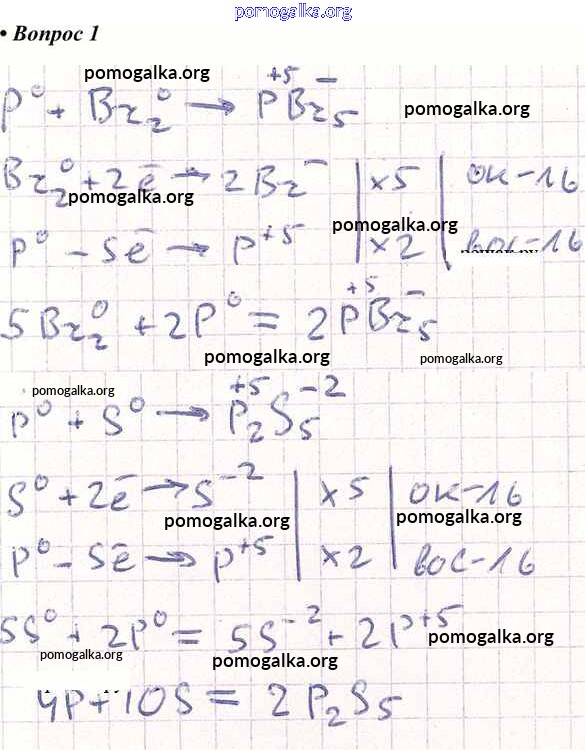 pomogalka.org
• Вопрос 1
pomogalka.org
P⁰ + Br₂⁰ → P⁺⁵Br₅⁻
pomogalka.org
Br₂⁰ + 2ē → 2Br⁻ | ×5 | ок-ль
pomogalka.org
pomogalka.org
P⁰ - 5ē → P⁺⁵ | ×2 | вос-ль
5Br₂⁰ + 2P⁰ = 2P⁺⁵Br₅⁻
pomogalka.org
pomogalka.org
pomogalka.org
P⁰ + S⁰ → P₂⁺⁵S₅⁻²
S⁰ + 2ē → S⁻² | ×5 | ок-ль
pomogalka.org
pomogalka.org
P⁰ - 5ē → P⁺⁵ | ×2 | вос-ль
5S⁰ + 2P⁰ = 5S⁻² + 2P⁺⁵
pomogalka.org
pomogalka.org
pomogalka.org
4P + 10S = 2P₂S₅